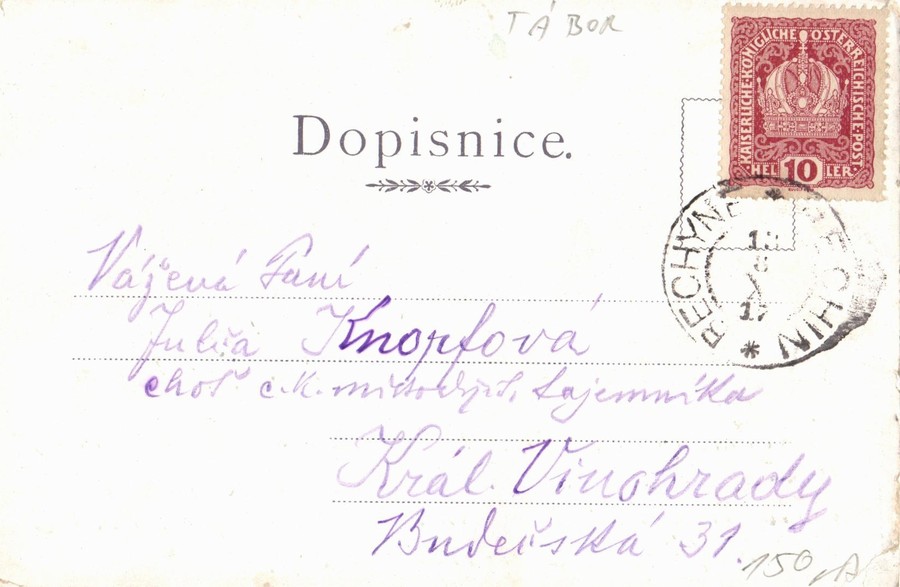 TÁBOR
KAISERLICHE·KÖNIGLICHE·ÖSTERREICHISCHE·POST
HEL 10 LER
Dopisnice.
BECHYNĚ * BECHIN *
Vážená Paní
Julča Knopfová
choť c.k. tajemníka
Král. Vinohrady
Budečská 31.
150,-